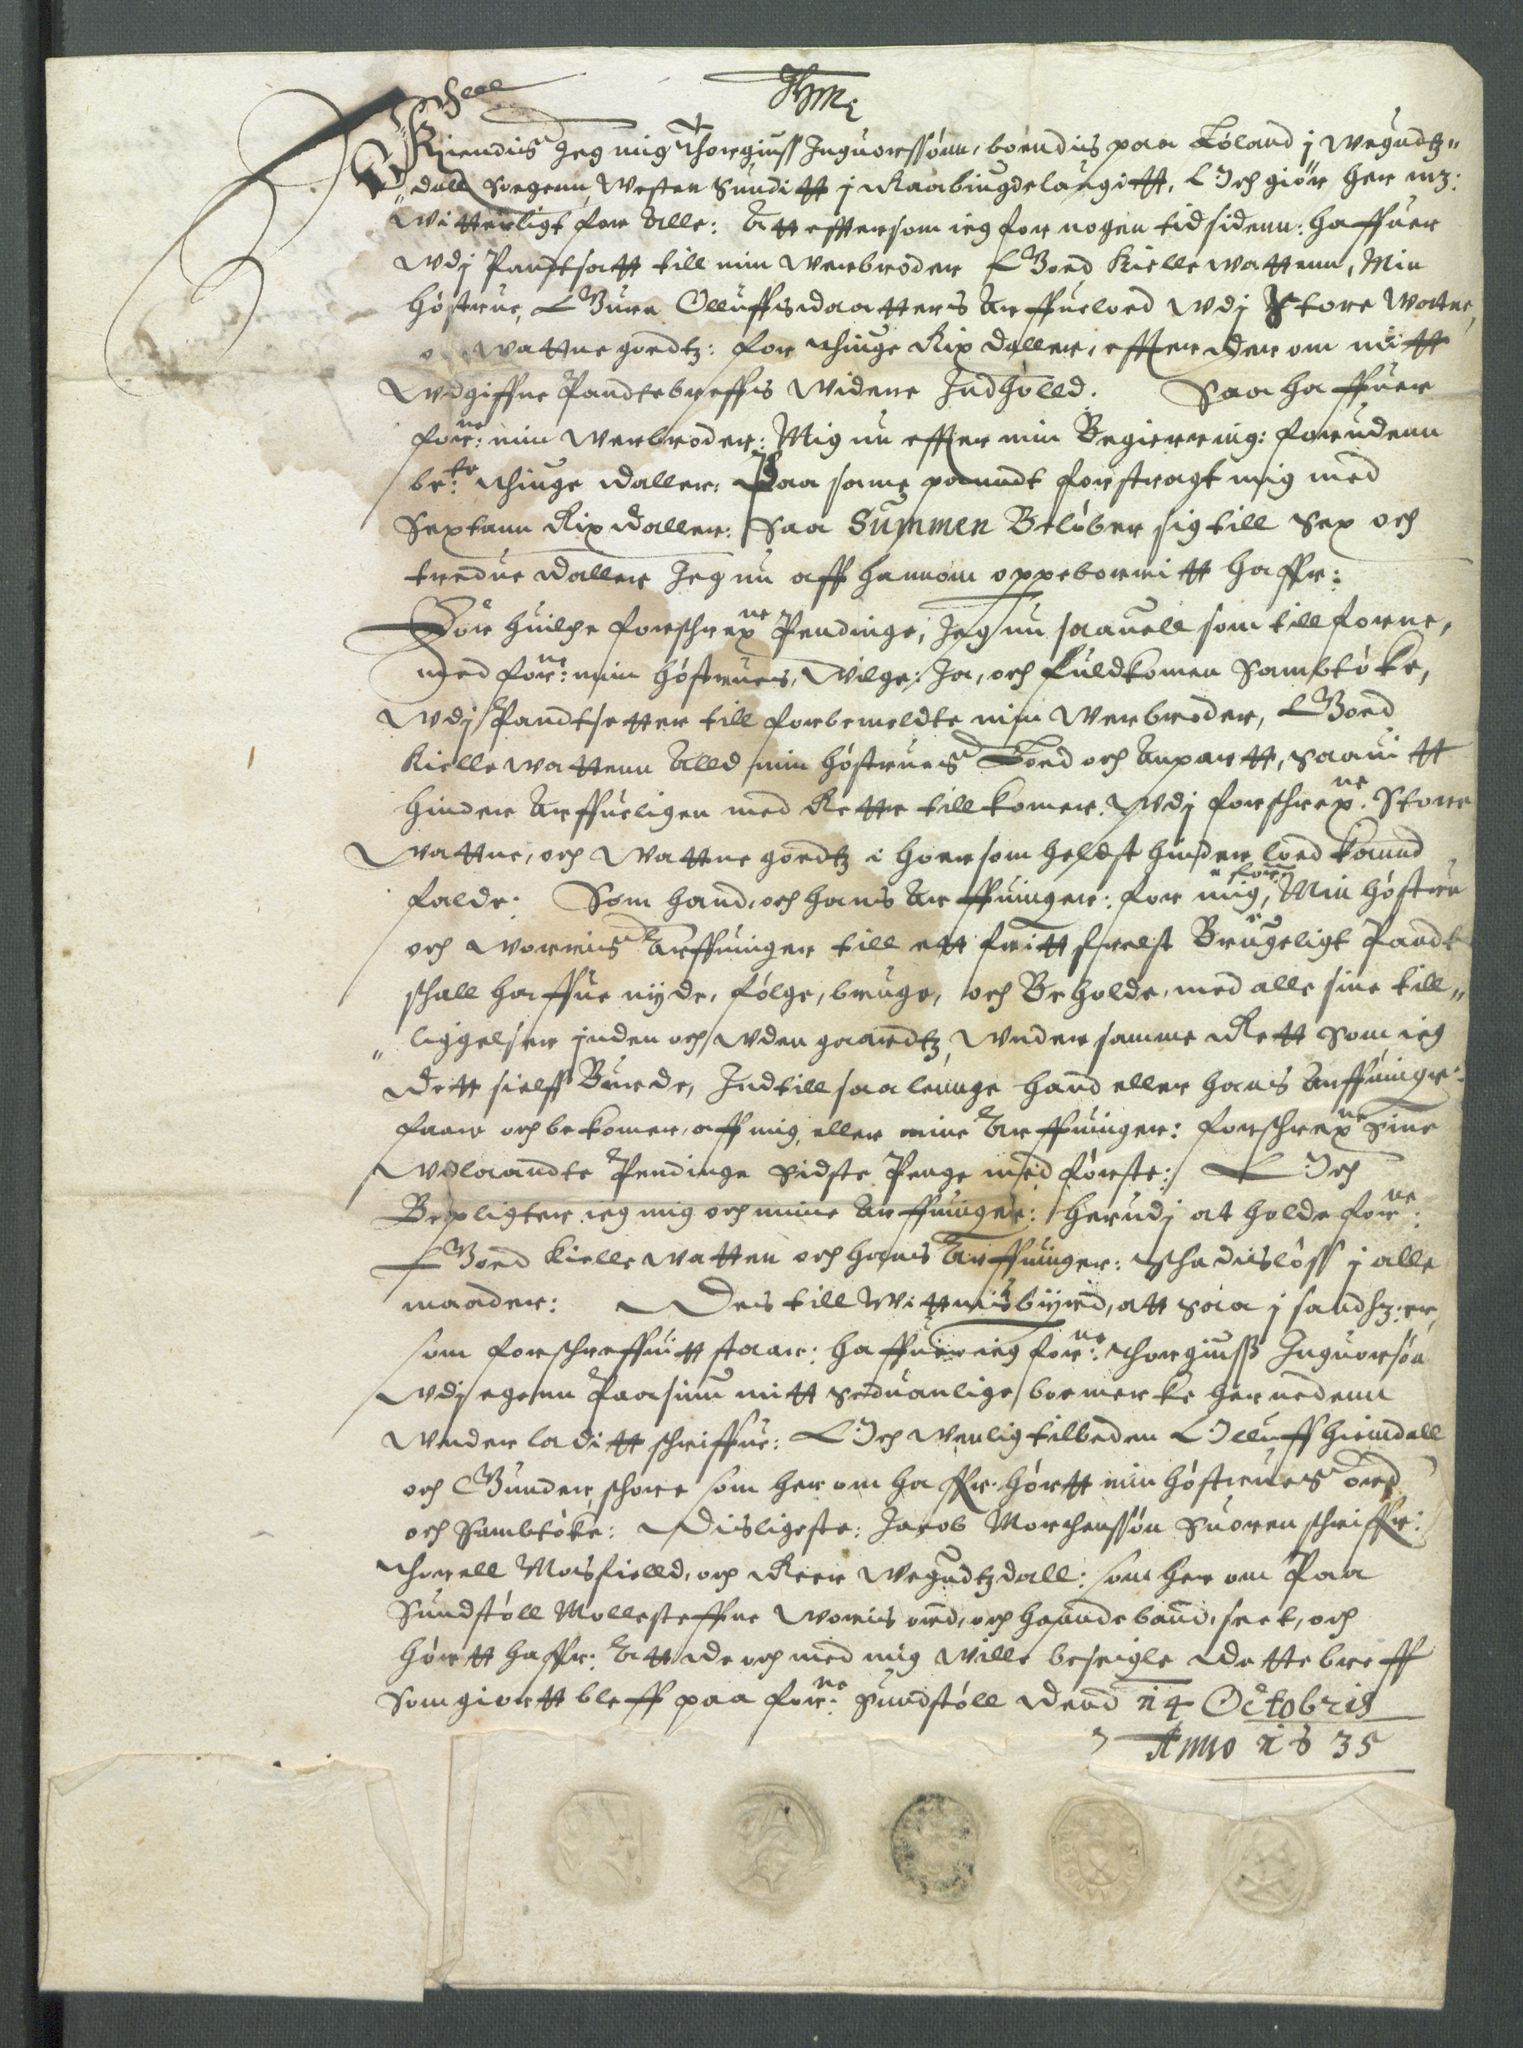 Kiendis Jeg mig Thorgiuss Inguorssønn, boendis paa Løland j Wegudtz„
dall Soegenn, Westen Sunditt j Raabiugdelaugitt, Och giør her mz:
Witterligt for Alle: Att efftersom ieg for nogen tid sidenn: haffuer
Wdj Pantsatt till min Werbroder Boed Kielleuattenn, Min
høstrue, Gura Olluffsdaatters Arffuelod Wdj Store Watne,
Wattne goedtz: for thiuge Rix daller, effter der om nu itt
Wdgiffne Pandtebreffs Widere Indholld. Saa haffuer
for:ne min Werbroder: Mig nu effter min Begierring: forudenn
be:te thiuge daller: Paa same panndt forstragt mig med
Sextann Rixdaller: Saa Summen Beløber sig till Sex och
tredue daller Jeg nu aff hannom oppeborritt haffr:
For huilche forschreffne Pendinge, Jeg nu saauell som till forne,
med for:ne min høstrues, Wilge: Ja, och fuldkomen Sambtøke,
Wdj Pandtsetter till forbemeldte min Werbroder, Boed
Kielleuattenn Alld min høstrues Loed och Anpartt, saauitt
hinder Arffueligen med Rette tillkomer. Wdj forschreffne Store
Wattne, och Wattne goedtz i huorsomheldst hinder loed kannd
falde: Som hand, och hans Arffuinger: for mig, Min høstru
och Worris Arffuinger till ett fritt frelst Brugeligt Pandt
schall haffue nyde, følge, bruge, och Beholde, med alle sine till„
liggelser jnden och Wden gaardtz Wnder samme Rett som ieg
dett sielff Burde, Indtill saa lennge hand eller hans Arffuinger
faar och bekomer, aff mig, eller mine Arffuinger: forschreffne Sine
Wdlaandte Pendinge Sidste Penge med første: Och
Bepligter ieg mig och mine Arffuinger: herudj at holde for:ne
Boed Kielleuatten och hans Arffuinger: Schadisløss j alle
maader: Dis till Wittnisbyrd, att saa j sandhz: er,
som forschreffuitt staar: haffuer ieg for:ne Thorgiuss Inguorsøn
Wdj egenn Paasiun mitt seduanlige boemerke her nedenn
Wnder laditt schriffue: Och Wenlig tilbeden Olluff hiemdall
och Gunder schore som her om haffr. hørtt min høstrues ord
och Sambtøke: Disligeste: Jacob Morthenssøn Suoren schriffr:
Thorell Mosfielld, och Reer Wegudtzdall: som her om Paa
Sundstøll Mollesteffne Woris ord, och haandebannd, seet, och
hørtt haffr: Att de och med mig Wille beseigle dette breff
Som giortt bleff paa for:ne Sundstøll Dend 14 Octobris
Anno 1635